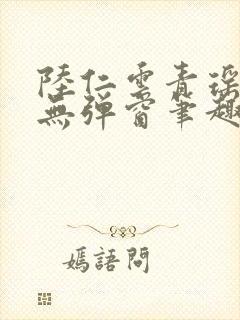 陸仁雲青瑶
無彈窗筆趣
嫣語問